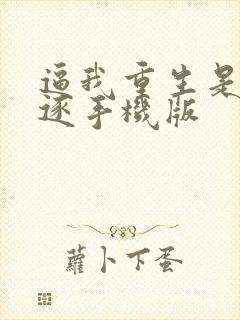 逼我重生是
逐手機版
蘿卜下蛋